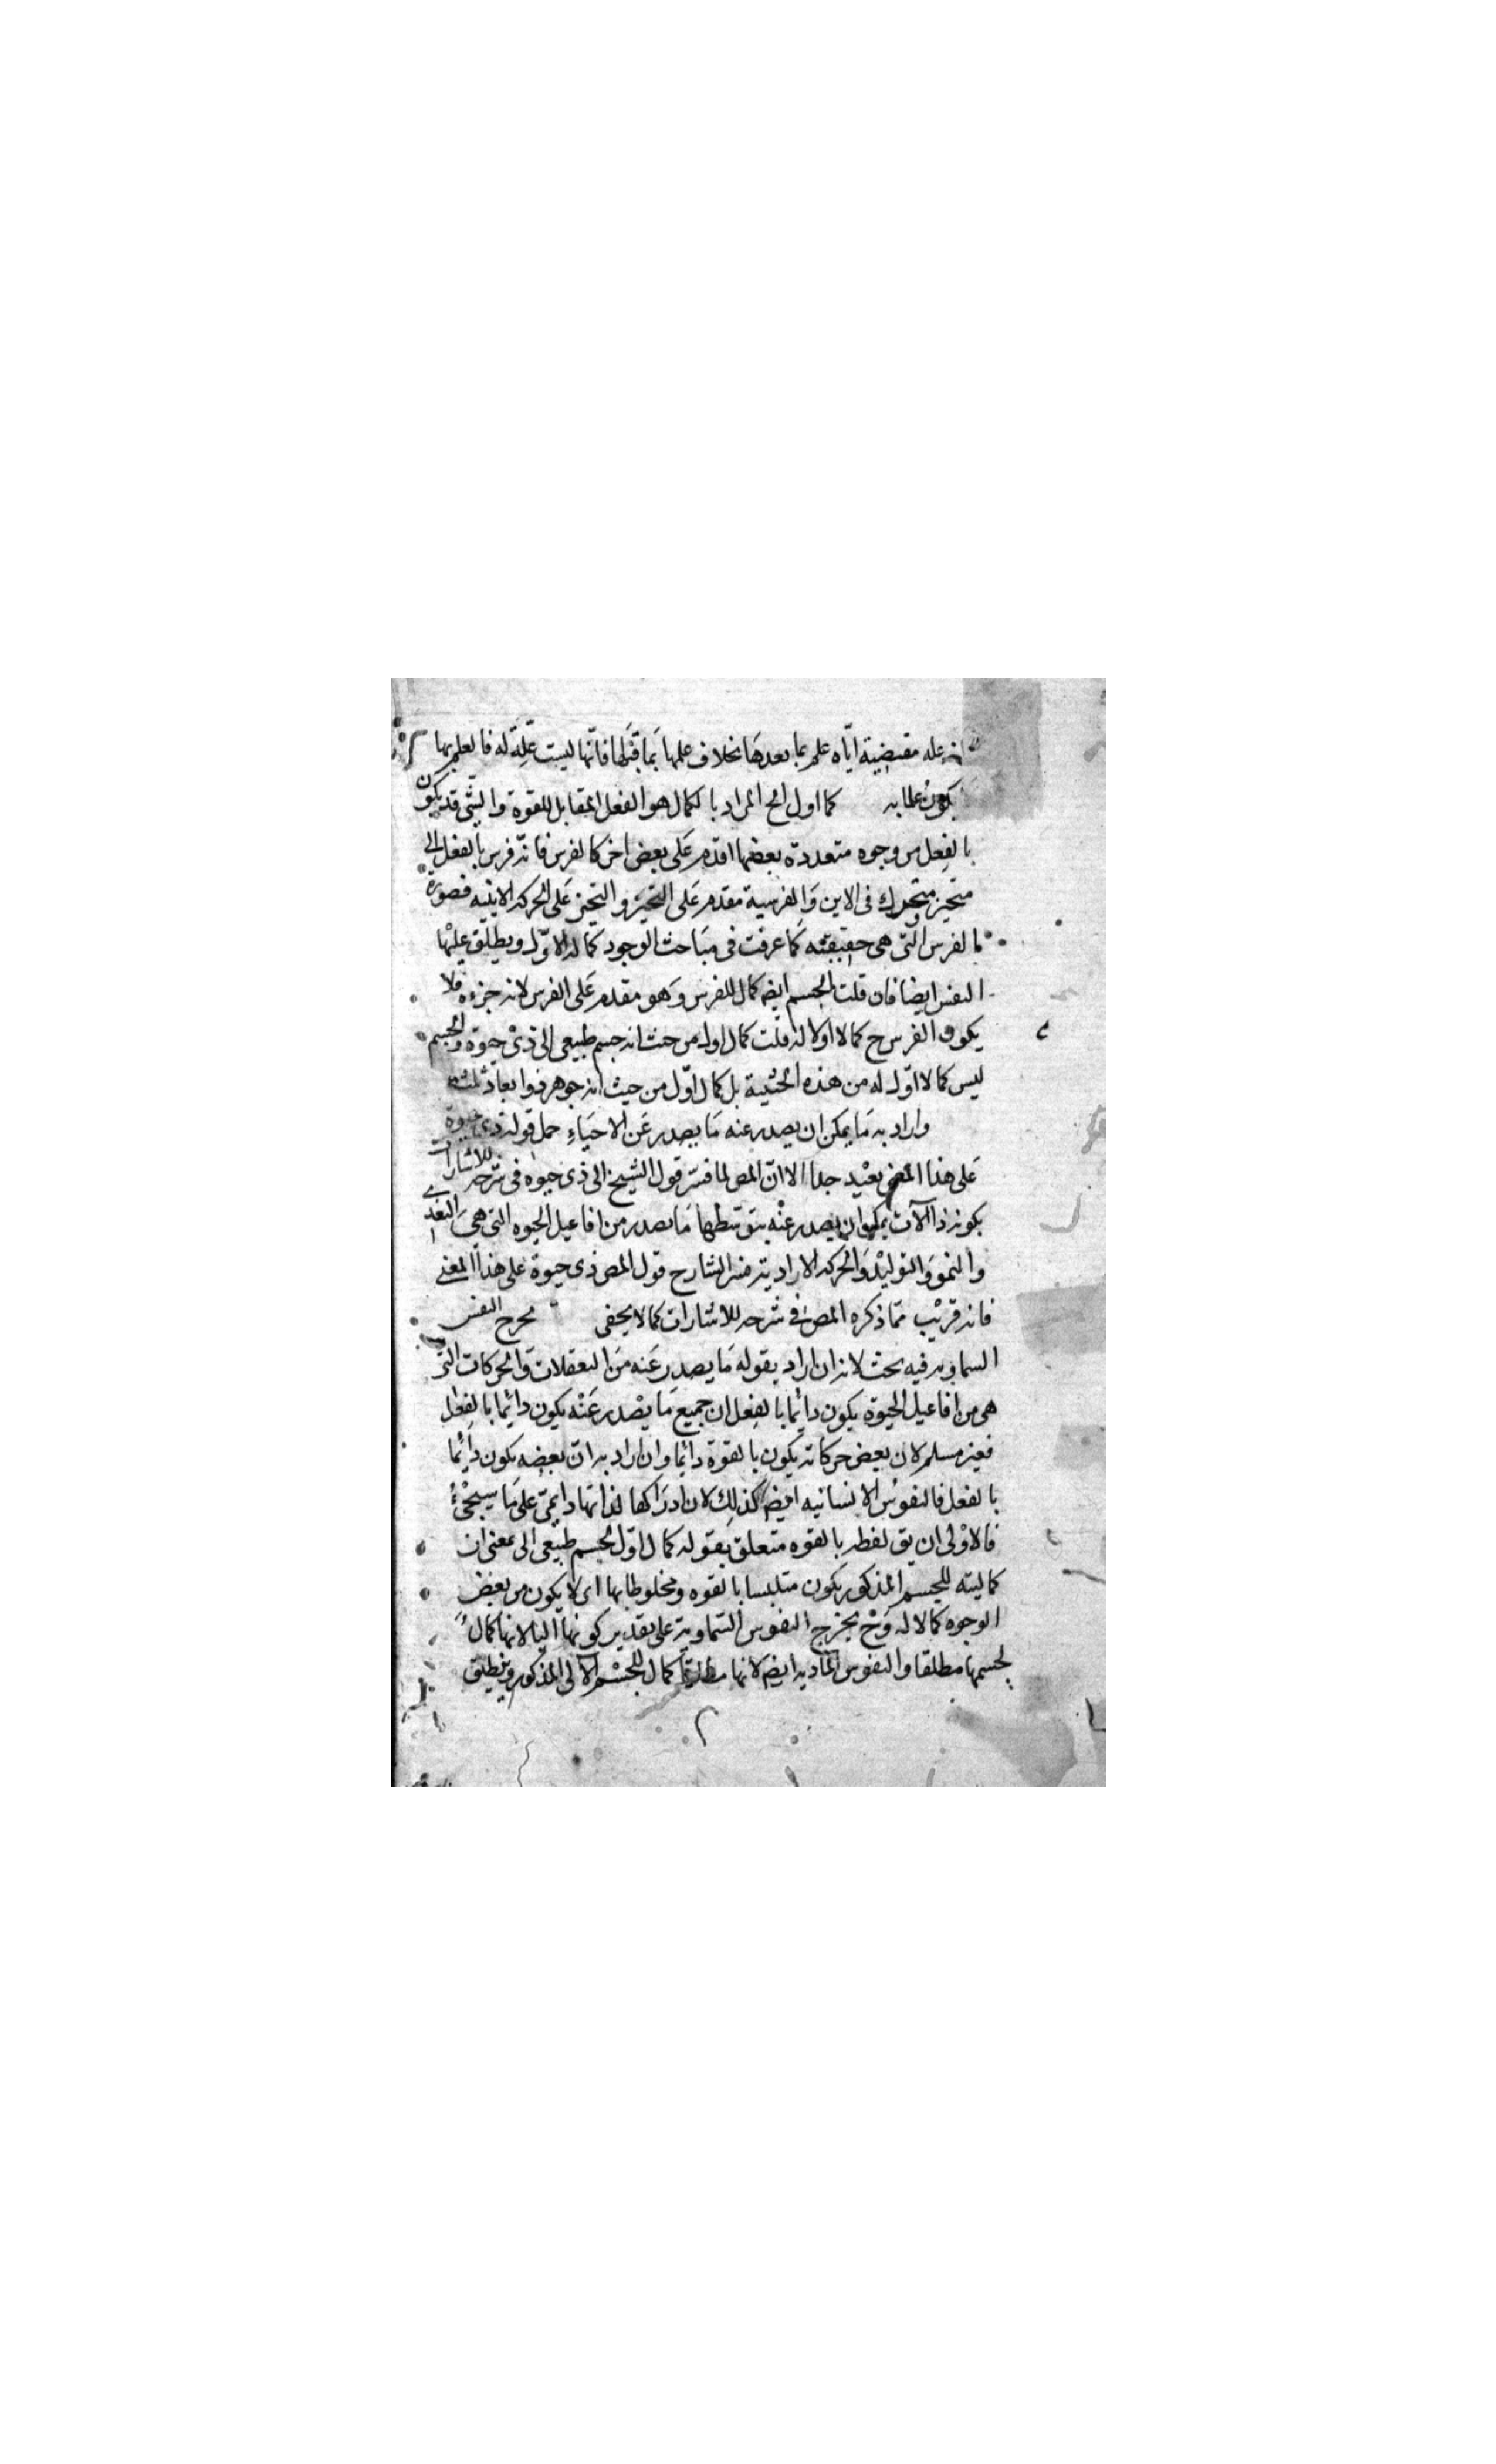 علة مقتضية اياه علم بما بعدها بخلاف علمها بما قبلها فانها ليست علة له فالعلم بها
يكون علما به كمال اول الخ المراد بالكمال هو الفعل المقابل للقوة والشئ قد يكون
بالفعل من وجوه متعددة بعضها اقدم على بعض اخر كالفرس فانه فرس بالفعل
متحيز متحرك فى الاين والفرسية مقدم على التحيز والتحيز على الحركة الاينيه فصورة
الفرس التى هى حقيقته كما عرفت فى مباحث الوجود كماله الاول ويطلق عليها
النفس ايضا فان قلت الجسم ايضه كمال للفرس وهو مقدم على الفرس لانه جزءه فلا
يكون الفرس ح كمالا اولا له قلت كمال اول من حيث انه جسم طبيعى الى ذى حيوة والجسم
ليس كمالا اول له من هذه الحيثية بل كمال اول من حيث انه جوهر ذو ابعاد ثلثه
واراد به ما يمكن ان يصدر عنه ما يصدر عن الاحياء حمل قوله ذى حيوة
على هذا المعنى بعيد جدا الا ان المص لما فسر قول الشيخ الى ذى حيوة فى شرحه للاشارات
بكونه ذا آلات يمكن ان يصدر عنه بتوسطها ما يصدر من افاعيل الحيوه التى هى التغذى
والنمو والتوليد والحركه الاراديه فسر الشارح قول المص ذى حيوة على هذا المعنى
فانه قريب مما ذكره المص فى شرحه للاشارات كما لا يخفى مخرج النفس
السماويه فيه بحث لانه ان اراد بقوله ما يصدر عنه من التعقلات والحركات التى
هى من افاعيل الحيوة يكون دائما بالفعل ان جميع ما يصدر عنه يكون دائما بالفعل
فغير مسلم لان بعض حركاته يكون بالقوة دائما وان اراد به ان بعضه يكون دائما
بالفعل فالنفوس الانسانيه ايضه كذلك لان ادراكها لذاتها دايمى على ما سيجئ
فالاولى ان يق لفظه بالقوه متعلق بقوله كمال اول لجسم طبيعى الى بمعنى ان
كماليته للجسم المذكور يكون متلبسا بالقوه ومخلوطا بها اى لا يكون من بعض
الوجوه كمالا له وح يخرج النفوس السماوية على تقدير كونها اليا لانها كمال
لجسمها مطلقا والنفوس الماديه ايضه لانها مطلقا كمال للجسم الآلى المذكور وينطبق